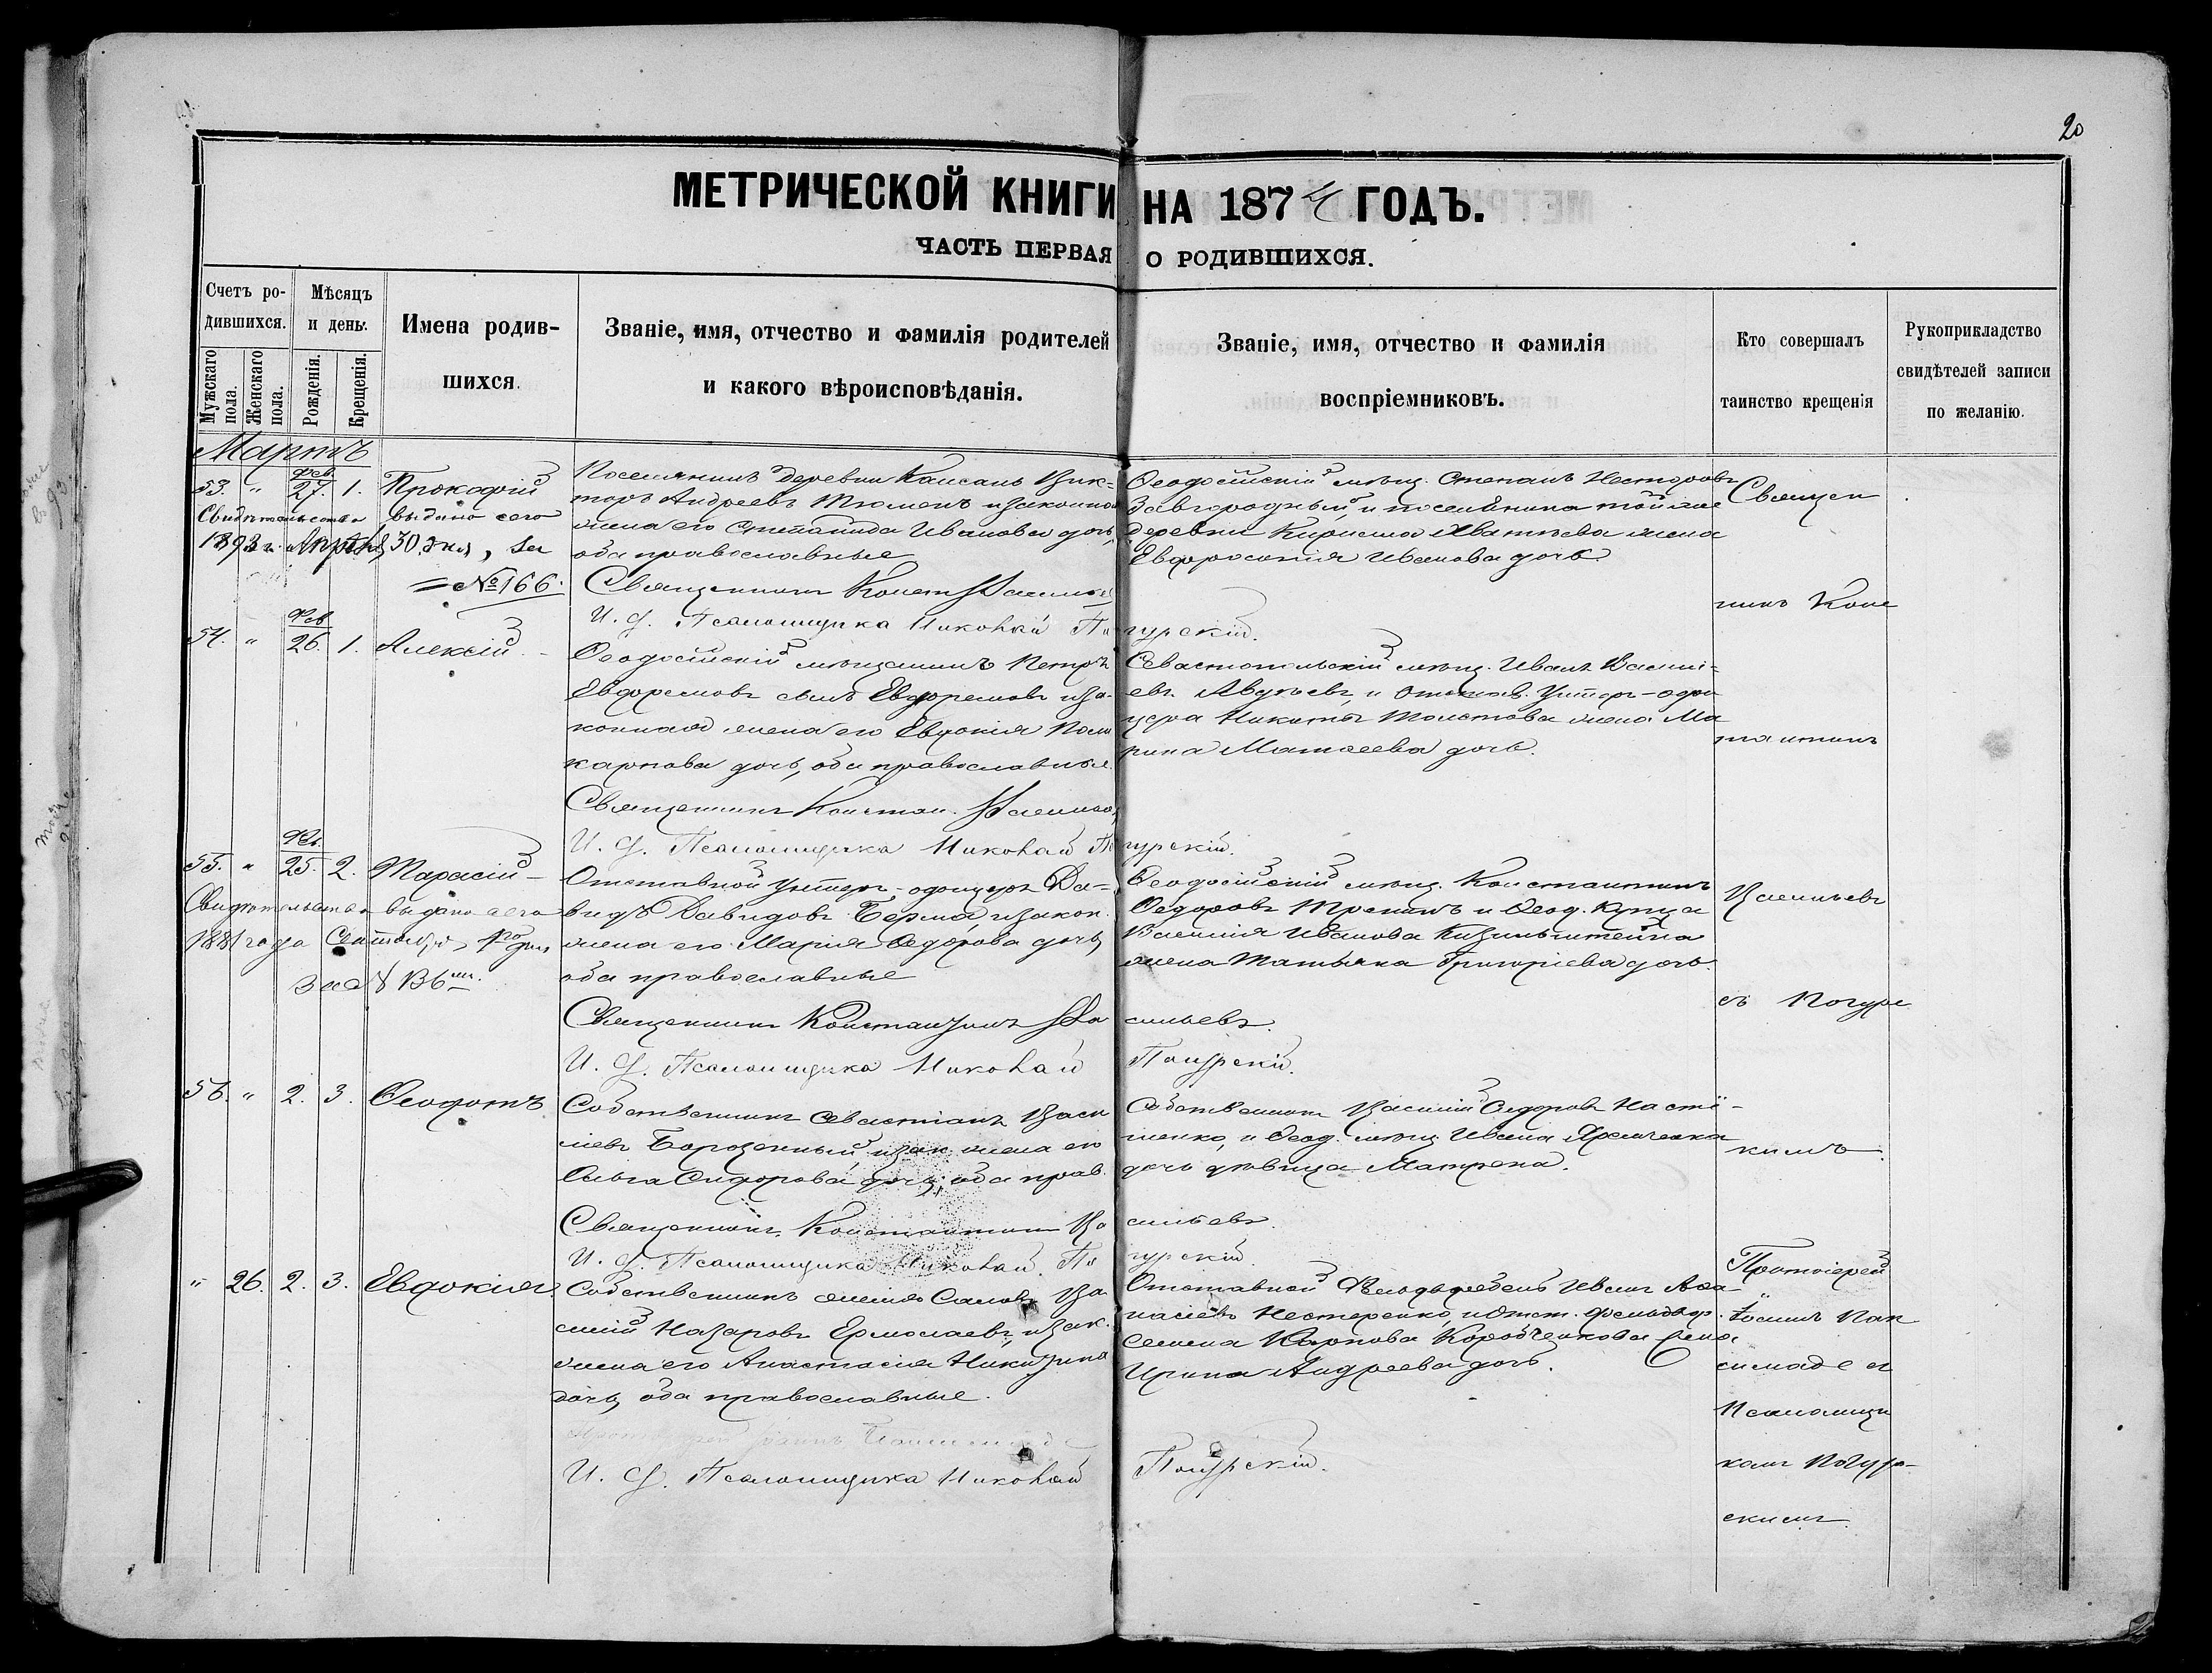 20
МЕТРИЧЕСКОЙ КНИГИ НА 1874 ГОДЪ.
ЧАСТЬ ПЕРВАЯ О РОДИВШИХСЯ.
Счетъ ро-
дившихся.
Мужскаго пола.
Женскаго пола.
Мѣсяцъ
и день.
Рожденія.
Крещенія.
Имена родив-
шихся.
Званіе, имя, отчество и фамилія родителей
и какого вѣроисповѣданія.
Званіе, имя, отчество и фамилія
воспріемниковъ.
Кто совершалъ
таинство крещенія
Рукоприкладство
свидѣтелей записи
по желанію.
Мартъ
53. " Фев. 27. 1. Прокофій
Свидѣтельство выдано сего
1893 г. Апрѣля 30 дня, за
№ 166.
Поселянинъ деревни Вик-
торъ Андреевъ и законная
жена его Степанида Иванова дочь,
оба православные
Ѳеодосійскій мѣщ. Степанъ Несторовъ
Завгородный, и поселянина той же
деревни жена
Евфросинія Иванова дочь.
Священникъ
И. д. Псаломщика Николай Погурскій.
54. " Фев 26. 1. Алексій
Ѳеодосійскій мѣщанинъ Петръ
Евфремовъ сынъ Евфремовъ и за-
конная жена его Евдокія Поли
карпова дочь, оба православные.
Севастопольскій мѣщ. Иванъ Василі-
евъ Авдѣевъ, и отстав. Унтеръ-офи
цера Никиты Толстова жена Ма
рина Матѳеева дочь.
Священникъ Констан. Васильев
И. д. Псаломщика Николай Погурскій.
55. " Фев. 25. 2. Тарасій
Свидѣтельство выдано сего
1881 года Сентября 1го дня
за № 136м.
Отставной Унтеръ-офицеръ Да-
видъ Давидовъ и закон.
жена его Марія Ѳедорова дочь,
оба православные
Ѳеодосійскій мѣщ. Константинъ
Ѳедоровъ и Ѳеод. купца
Василія Иванова
жена Татьяна Григоріева дочь.
Священникъ Константинъ Васильевъ.
И. д. Псаломщика Николай Погурскій.
56. " 2. 3. Ѳеодотъ
Собственникъ Севастіанъ Васи
ліевъ и зак. жена его
Ольга Сидорова дочь, оба прав.
Собственникъ Василій Сидоровъ Насті-
шенко, и Ѳеод. мѣщ. Ивана
дочь дѣвица Матрена.
Священникъ Константинъ Васильевъ.
И. д. Псаломщика Николай Погурскій
" 26. 2. 3. Евдокія
Собственникъ Ва
силій Назаровъ Ермолаевъ, и зак.
жена его Анастасія Никитина
дочь, оба православные.
Отставной Фельдфебель Иванъ Аѳа
насіевъ Нестеренко, и Отст. фельдфеб.
Семена Карпова жена
Ирина Андреева дочь.
И. д. Псаломщика Николай Погурскій.
Священ
никъ Конс
тантинъ
Васильевъ
съ Погурс
кимъ.
Протоіерей
съ
Псаломщи
комъ Погур-
скимъ.